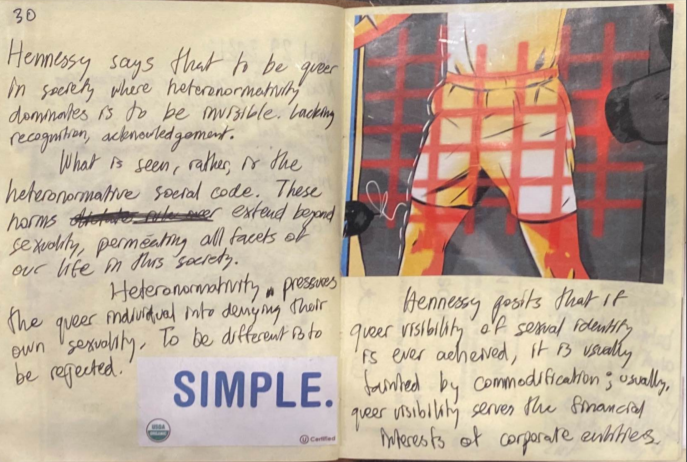 30
Hennessy says that to be queer
in society where heteronormativity
dominates is to be invisible. Lacking
recognition, acknowledgement.
What is seen, rather, is the
heteronormative social code. These
norms extend beyond
sexuality, permeating all facets of
our life in this society.
Heteronormativity pressures
the queer individual into denying their
own sexuality. To be different is to
be rejected.
SIMPLE.
USDA
ORGANIC
U Certified
Hennessy posits that if
queer visibility of sexual identity
is ever acheived, it is usually
tainted by commodification; usually,
queer visibility serves the financial
interests of corporate entities.